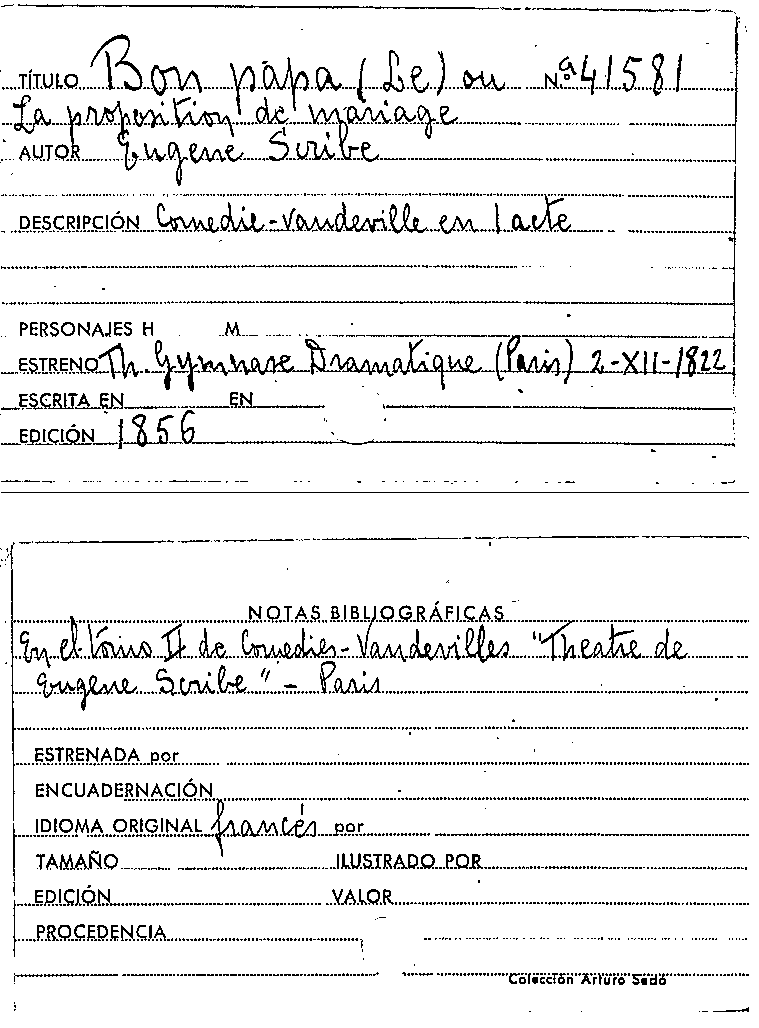 TÍTULO Bon papa (Le) ou Nº 41581
La proposition de mariage
AUTOR Eugene Scribe
DESCRIPCIÓN Comedie-Vaudeville en 1 acte
PERSONAJES H M
ESTRENO Th. Gymnase Dramatique (Paris) 2-XII-1822
ESCRITA EN EN
EDICIÓN 1856
NOTAS BIBLIOGRÁFICAS
En el tomo II de Comedies-Vaudevilles "Theatre de
Eugene Scribe" - Paris
ESTRENADA por
ENCUADERNACIÓN
IDIOMA ORIGINAL francés por
TAMAÑO ILUSTRADO POR
EDICIÓN VALOR
PROCEDENCIA
Colección Arturo Sedó